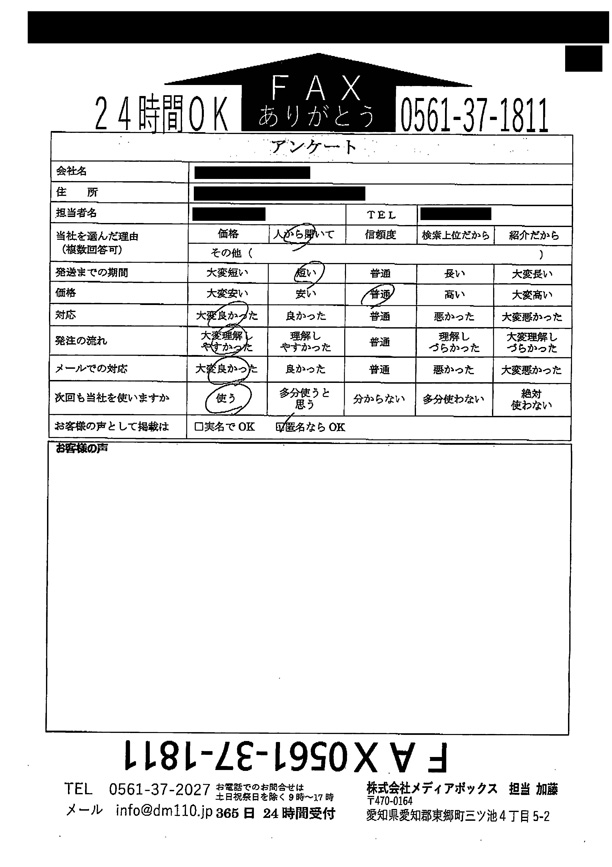 FAX
ありがとう
24時間OK 0561-37-1811
アンケート
会社名
住 所
担当者名 TEL
当社を選んだ理由
(複数回答可)
価格 人から聞いて 信頼度 検索上位だから 紹介だから
その他( )
発送までの期間 大変短い 短い 普通 長い 大変長い
価格 大変安い 安い 普通 高い 大変高い
対応 大変良かった 良かった 普通 悪かった 大変悪かった
発注の流れ 大変理解し
やすかった 理解し
やすかった 普通 理解し
づらかった 大変理解し
づらかった
メールでの対応 大変良かった 良かった 普通 悪かった 大変悪かった
次回も当社を使いますか 使う 多分使うと
思う 分からない 多分使わない 絶対
使わない
お客様の声として掲載は □実名でOK ☑匿名ならOK
お客様の声
FAX0561-37-1811
TEL 0561-37-2027 お電話でのお問合せは
土日祝祭日を除く9時〜17時
メール info@dm110.jp 365日 24時間受付
株式会社メディアボックス 担当 加藤
〒470-0164
愛知県愛知郡東郷町三ツ池4丁目5-2